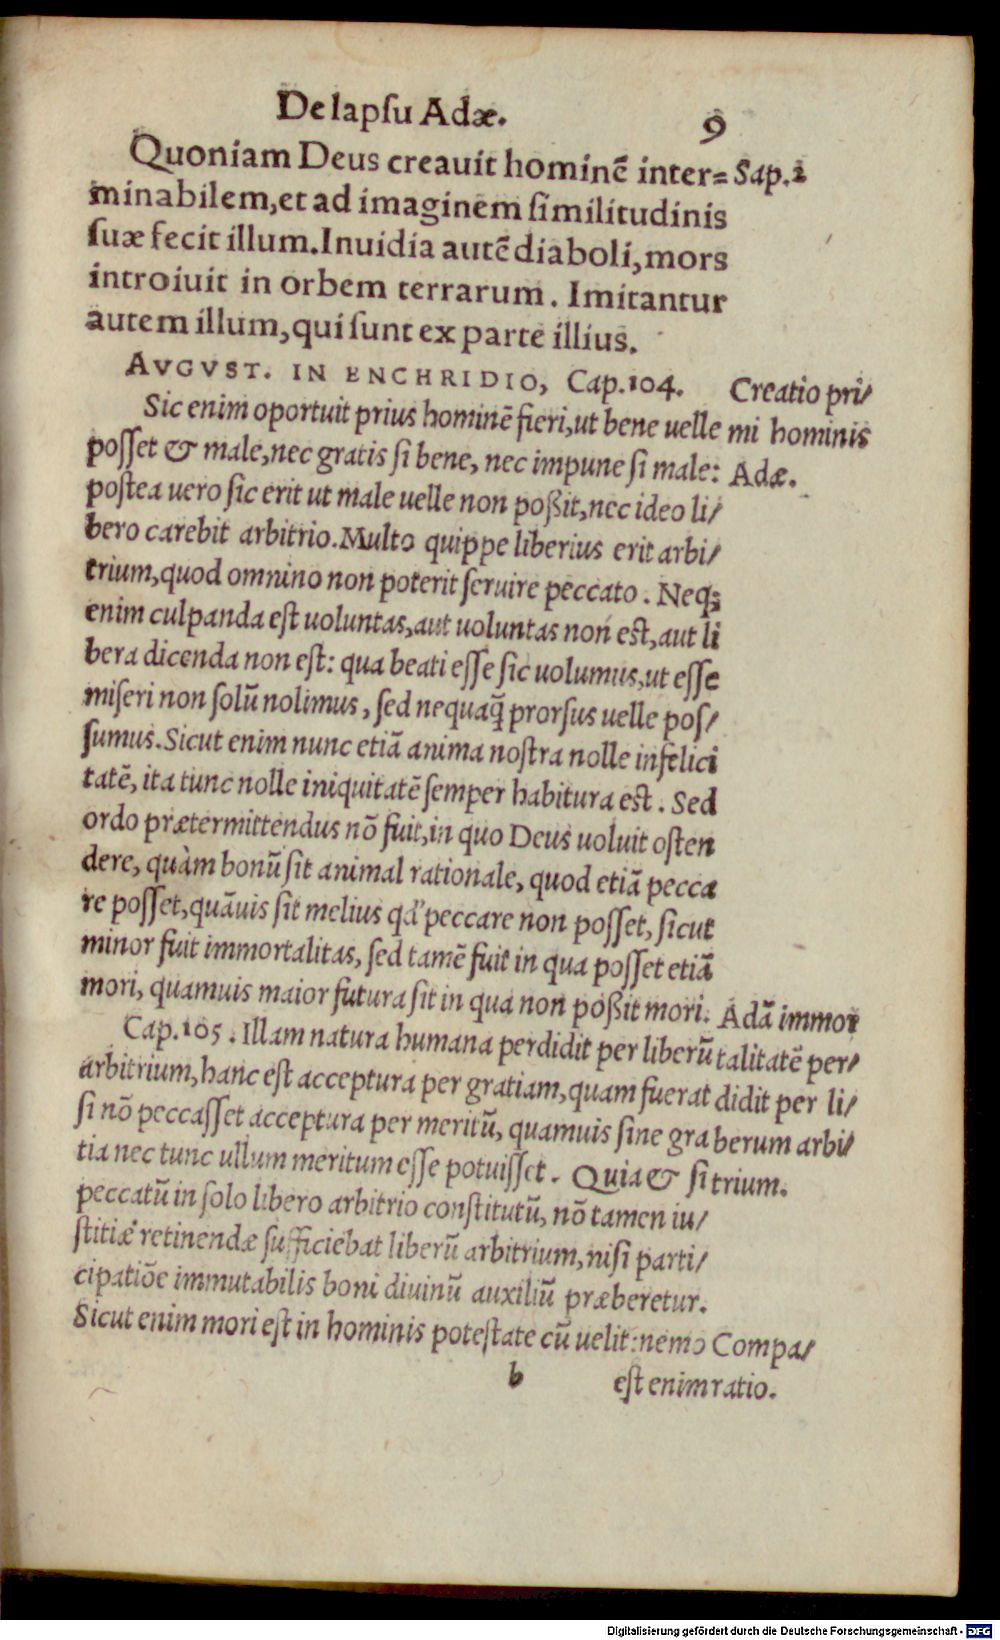 De lapſu Adæ. 9
Quoniam Deus creauit hominē inter= Sap.2
minabilem, et ad imaginem ſimilitudinis
ſuæ fecit illum. Inuidia autē diaboli, mors
introiuit in orbem terrarum. Imitantur
autem illum, qui ſunt ex parte illius.
AVGVST. IN ENCHRIDIO, Cap. 104.
Creatio pri/
mi hominis
Adæ.
Sic enim oportuit prius hominē fieri, ut bene uelle
poſſet & male, nec gratis ſi bene, nec impune ſi male:
poſtea uero ſic erit ut male uelle non poßit, nec ideo li/
bero carebit arbitrio. Multo quippe liberius erit arbi/
trium, quod omnino non poterit ſeruire peccato. Neq;
enim culpanda eſt uoluntas, aut uoluntas non eſt, aut li
bera dicenda non eſt: qua beati eſſe ſic uolumus, ut eſſe
miſeri non ſolū nolimus, ſed nequaq̃ prorſus uelle poſ/
ſumus. Sicut enim nunc etiā anima noſtra nolle infelici
tatē, ita tunc nolle iniquitatē ſemper habitura eſt. Sed
ordo prætermittendus nō fuit, in quo Deus uoluit oſten
dere, quàm bonū ſit animal rationale, quod etiā pecca
re poſſet, quāuis ſit melius qđ peccare non poſſet, ſicut
minor fuit immortalitas, ſed tamē fuit in qua poſſet etiā
mori, quamuis maior futura ſit in qua non poßit mori.
Adā immor
talitatē per/
didit per li/
berum arbi/
trium.
Cap. 105. Illam natura humana perdidit per liberū
arbitrium, hanc eſt acceptura per gratiam, quam fuerat
ſi nō peccaſſet acceptura per meritū, quamuis ſine gra
tia nec tunc ullum meritum eſſe potuiſſet. Quia & ſi
peccatū in ſolo libero arbitrio conſtitutū, nō tamen iu/
ſtitiæ retinendæ ſufficiebat liberū arbitrium, niſi parti/
cipatiōe immutabilis boni diuinū auxiliū præberetur.
Sicut enim mori eſt in hominis poteſtate cū uelit: nemo Compa/
b eſt enim ratio.
Digitalisierung gefördert durch die Deutsche Forschungsgemeinschaft - DFG